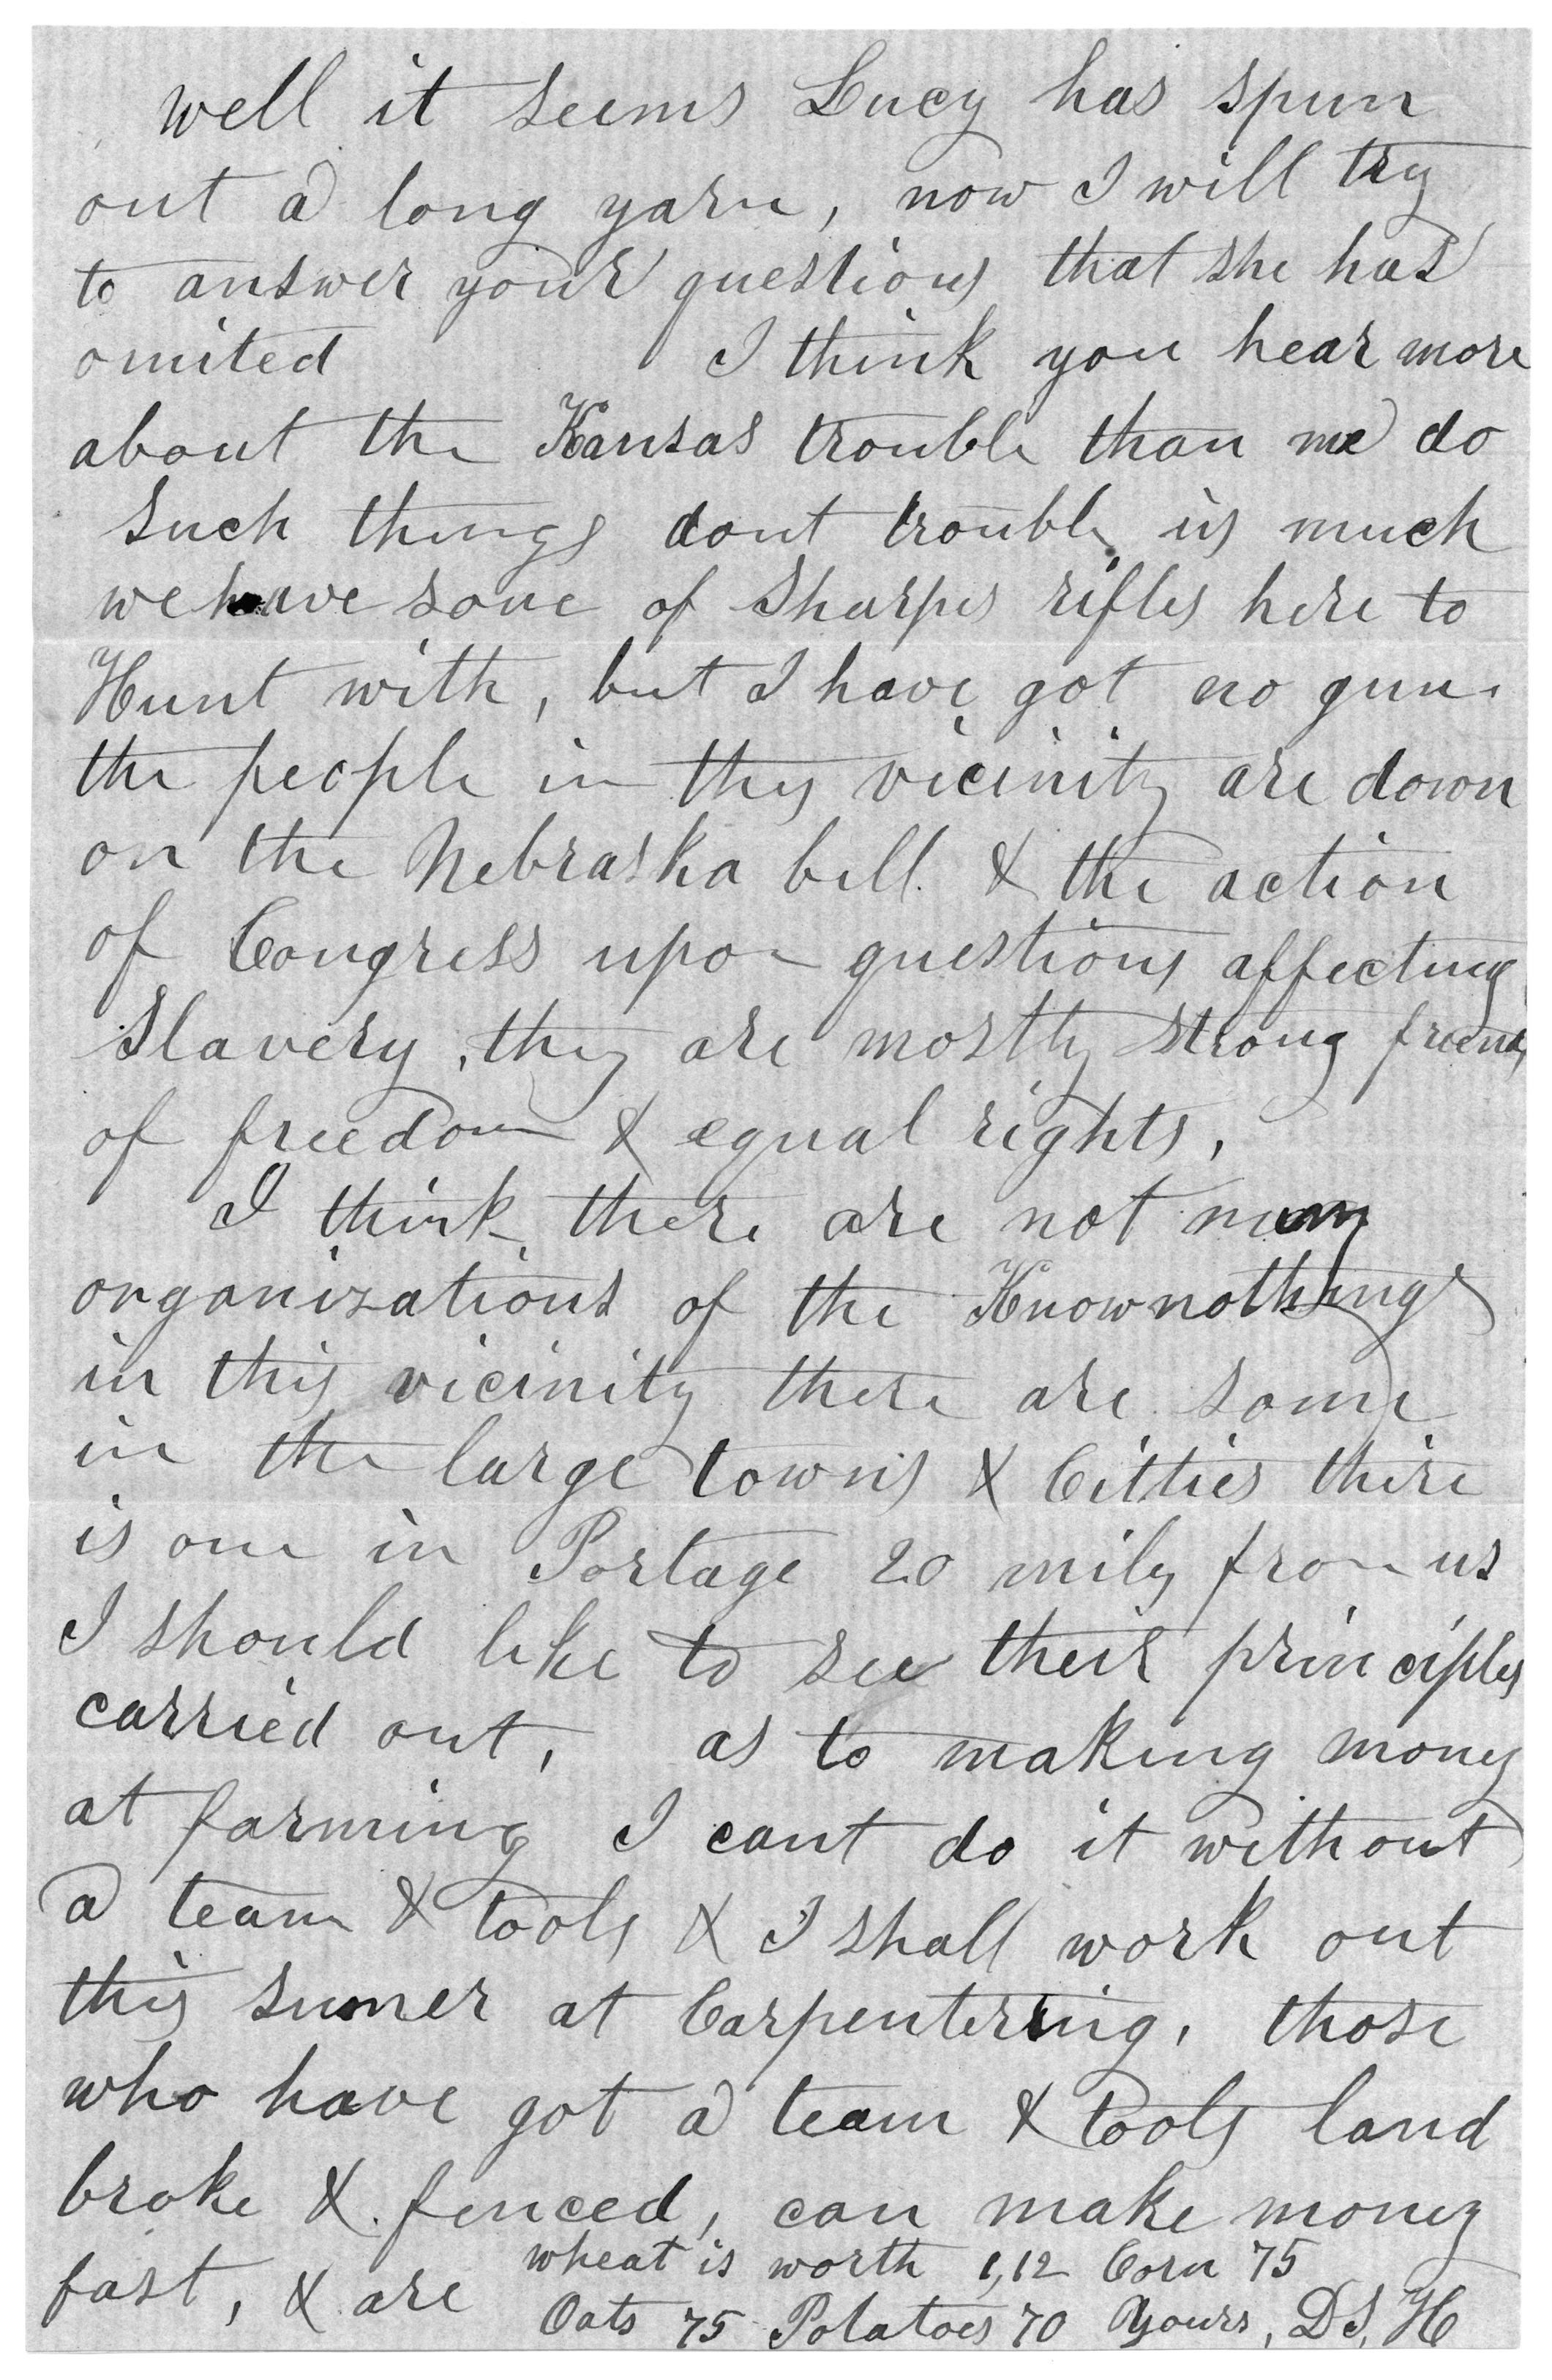 well it seems Lucy has spun
out a long yarn, now I will try
to answer your questions that she has
omited I think you hear more
about the Kansas trouble than we do
such things dont trouble us much
we have some of Sharpes rifles here to
Hunt with, but I have got no gun.
the people in this vicinity are down
on the Nebraska bill & the action
of Congress upon questions affecting
Slavery, they are mostly strong friends
of freedom & equal rights,
I think there are not many
organizations of the Knownothings
in this vicinity there are some
in the large towns & Citties there
is one in Portage 20 miles from us
I should like to see their principles
carried out, as to making money
at farming I cant do it without
a team & tools & I shall work out
this sumer at Carpenterring, those
who have got a team & tools land
broke & fenced, can make money
fast, & are
wheat is worth 1,12 Corn 75
Oats 75 Potatoes 70 Yours, D S, H